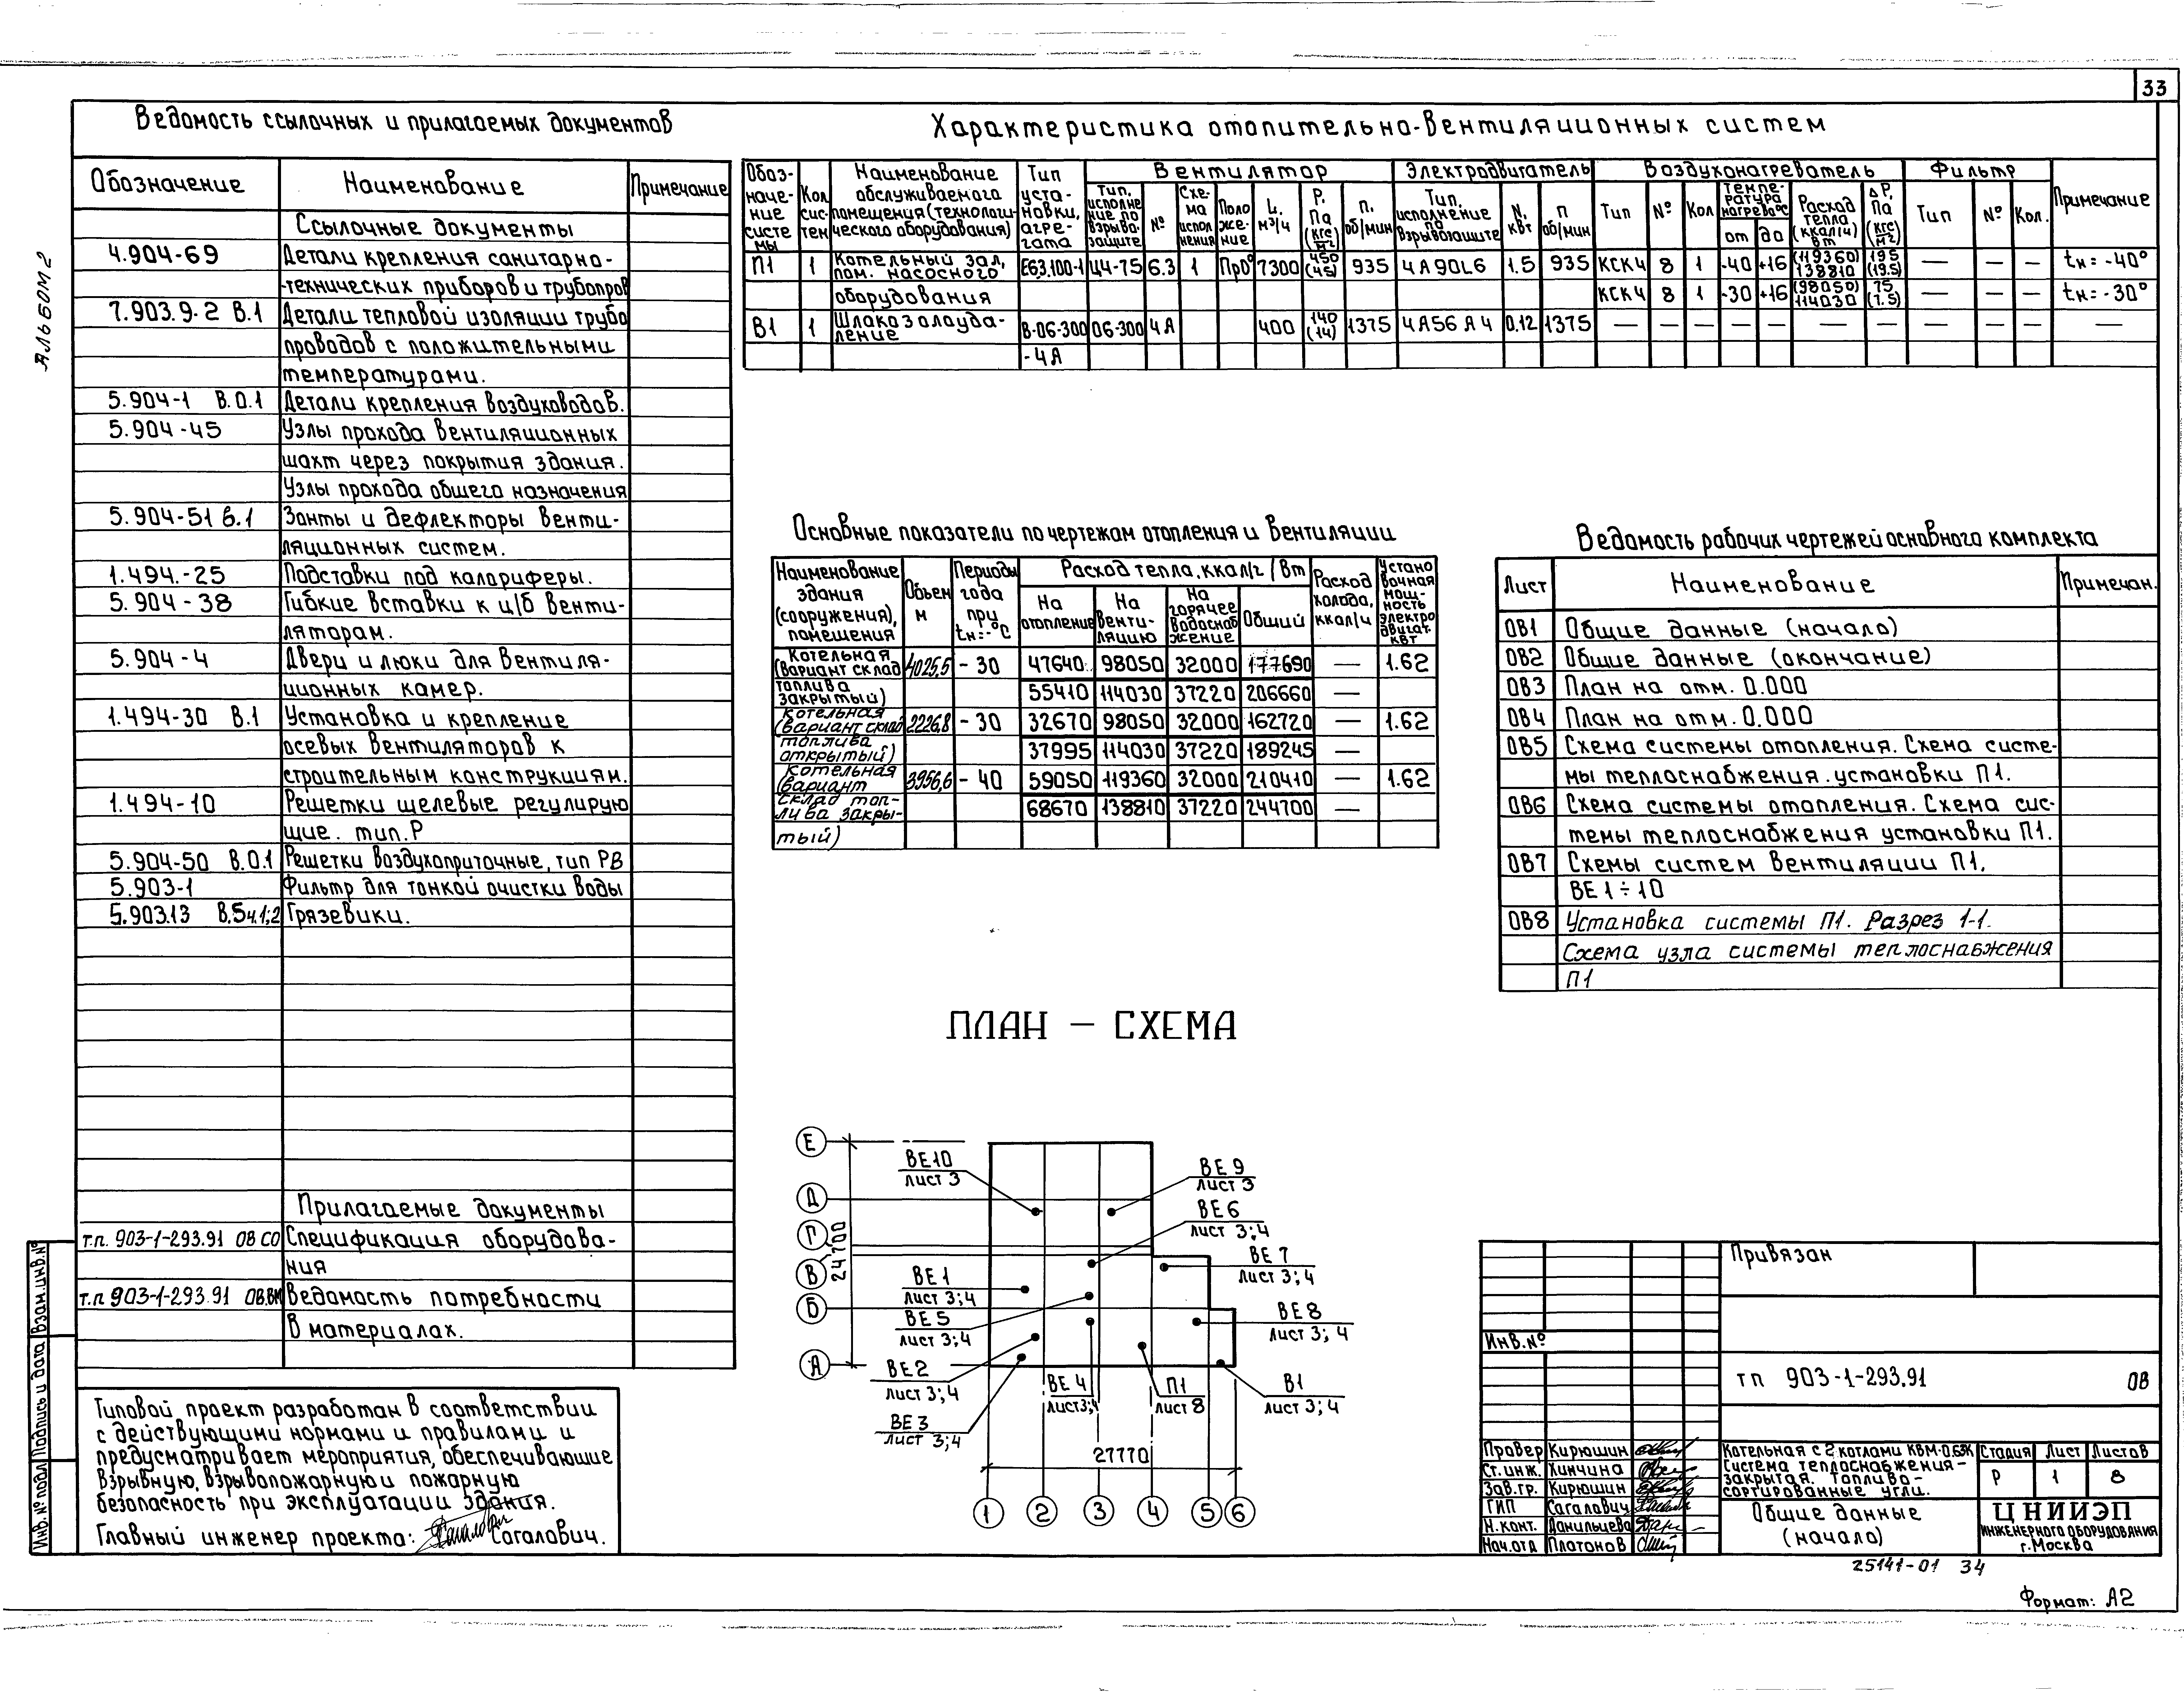 33
АЛЬБОМ 2
Ведомость ссылочных и прилагаемых документов
Обозначение Наименование Примечание
Ссылочные документы
4.904-69 Детали крепления санитарно-
-технических приборов и трубопров
7.903.9-2 В.1 Детали тепловой изоляции трубо
проводов с положительными
температурами.
5.904-1 В.0.1 Детали крепления воздуховодов.
5.904-45 Узлы прохода вентиляционных
шахт через покрытия здания.
Узлы прохода общего назначения
5.904-51 в.1 Зонты и дефлекторы венти-
ляционных систем.
1.494.-25 Подставки под калориферы.
5.904-38 Гибкие вставки к ц/б венти-
ляторам.
5.904-4 Двери и люки для вентиля-
ционных камер.
1.494-30 В.1 Установка и крепление
осевых вентиляторов к
строительным конструкциям.
1.494-10 Решетки щелевые регулирую
щие. тип.Р
5.904-50 В.0.1 Решетки воздухоприточные, тип РВ
5.903-1 Фильтр для тонкой очистки воды
5.903.13 В.5ч.1;2 Грязевики.
Прилагаемые документы
т.п. 903-1-293.91 ОВ СО Спецификация оборудова-
ния
т.п 903-1-293.91 ОВ.ВМ Ведомость потребности
в материалах.
Типовой проект разработан в соответствии
с действующими нормами и правилами и
предусматривает мероприятия, обеспечивающие
взрывную, взрывопожарную и пожарную
безопасность при эксплуатации здания.
Главный инженер проекта: Сагалович.
Инв.№ подл Подпись и дата Взам.инв.№
Характеристика отопительно-вентиляционных систем
Обоз-
наче-
ние
систе
мы
Кол
сис-
тем
Наименование
обслуживаемого
помещения (технологи-
ческого оборудования)
Тип
уста-
новки,
агре-
гата
Вентилятор
Тип,
исполне
ние по
взрыво-
защите
№
Схе-
ма
испол
нения
Поло
же-
ние
L,
м³/ч
Р,
Па
(кгс/м²)
п,
об/мин
Электродвигатель
Тип,
исполнение
по
взрывозащите
N,
квт
п
об/мин
Воздухонагреватель
Тип № Кол
Темпе-
ратура
нагрева °С
от до
Расход
тепла
(ккал/ч)
вт
ΔР,
Па
(кгс/м²)
Фильтр
Тип № Кол.
Примечание
П1 1 Котельный зал,
пом. насосного
оборудования
Е6.3.100-1 Ц4-75 6.3 1 Пр0° 7300 450 (45) 935 4А90L6 1.5 935 КСК4 8 1 -40 +16 (119360) 138810 195 (19.5) — — — tн=-40°
КСК4 8 1 -30 +16 (98050) 114030 75 (7.5) — — — tн=-30°
В1 1 Шлакозолоуда-
ление
В-06-300
-4А
06-300 4А 400 140 (14) 1375 4А56А4 0.12 1375 — — — — — — — — — — —
Основные показатели по чертежам отопления и вентиляции
Наименование
здания
(сооружения),
помещения
Объем
м
Периоды
года
при
tн=-°С
Расход тепла, ккал/г / Вт
На
отопление
На
венти-
ляцию
На
горячее
водоснаб
жение
Общий
Расход
холода,
ккал/ч
Устано
вочная
мощ-
ность
электро
двигат.
квт
Котельная
(вариант склад
топлива
закрытый)
4025,5 -30 47640 98050 32000 177690 — 1.62
55410 114030 37220 206660 —
Котельная
(вариант склад
топлива
открытый)
2226,8 -30 32670 98050 32000 162720 — 1.62
37995 114030 37220 189245 —
Котельная
(вариант
склад топ-
лива закры-
тый)
3956,6 -40 59050 119360 32000 210410 — 1.62
68670 138810 37220 244700 —
Ведомость рабочих чертежей основного комплекта
Лист Наименование Примечан.
ОВ1 Общие данные (начало)
ОВ2 Общие данные (окончание)
ОВ3 План на отм. 0.000
ОВ4 План на отм. 0.000
ОВ5 Схема системы отопления. Схема систе-
мы теплоснабжения. установки П1.
ОВ6 Схема системы отопления. Схема сис-
темы теплоснабжения установки П1.
ОВ7 Схемы систем вентиляции П1,
ВЕ 1÷10
ОВ8 Установка системы П1. Разрез 1-1.
Схема узла системы теплоснабжения
П1
ПЛАН – СХЕМА
Е
Д
Г
В
Б
А
24700
ВЕ10
лист 3
ВЕ9
лист 3
ВЕ6
лист 3;4
ВЕ7
лист 3;4
ВЕ1
лист 3;4
ВЕ5
лист 3;4
ВЕ8
лист 3; 4
ВЕ2
лист 3;4
ВЕ3
лист 3;4
ВЕ4
лист3;4
П1
лист 8
В1
лист 3; 4
27770
1 2 3 4 5 6
Привязан
Инв.№
тп 903-1-293.91 ОВ
Провер Кирюшин
Ст.инж. Хинчина
Зав.гр. Кирюшин
ГИП Сагалович
Н.конт. Данильцева
Нач.отд Платонов
Котельная с 2 котлами КВМ-0.63К
Система теплоснабжения-
закрытая. Топливо-
сортированные угли.
Стадия Лист Листов
Р 1 8
Общие данные
(начало)
ЦНИИЭП
ИНЖЕНЕРНОГО ОБОРУДОВАНИЯ
г.Москва
25141-01 34
Формат: А2